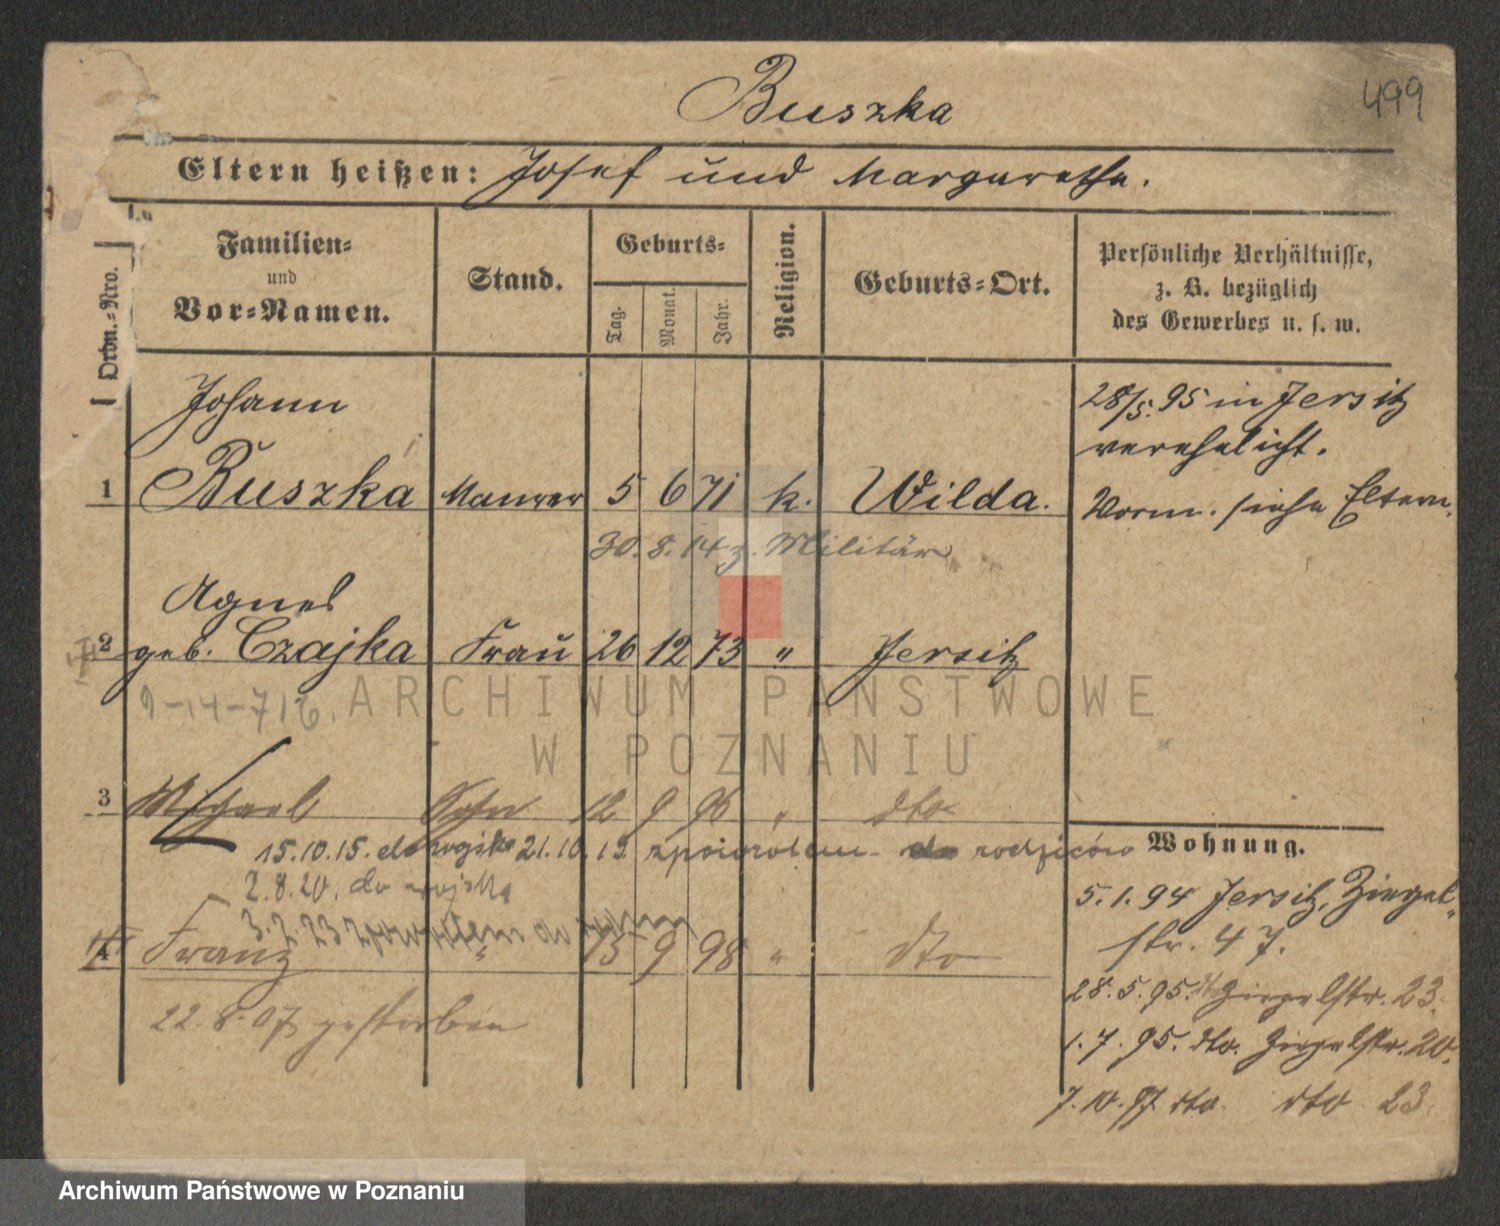 Buszka
499
Eltern heißen: Josef und Margarethe.
Ordn.-Nro.
Familien-
und
Vor-Namen.
Stand.
Geburts-
Tag.
Monat.
Jahr.
Religion.
Geburts-Ort.
Persönliche Verhältnisse,
z. B. bezüglich
des Gewerbes u. s. w.
Johann
1 Buszka Maurer 5 6 71 k. Wilda.
28/5. 95 in Jersitz
verehelicht.
Vorm. siehe Eltern.
30. 8. 14 z. Militär
Agnes
2 geb. Czajka Frau 26 12 73 " Jersitz
9-14-716.
ARCHIWUM PAŃSTWOWE
W POZNANIU
3 Michael Sohn 12 9 96 " dto
15.10.15. do wojska 21.10.15 zpowrotem do rodziców
2.8.20. do wojska
3.2.23 zpowrotem do
4 Franz " 15 9 98 " dto
22. 8. 07 gestorben
Wohnung.
5. 1. 94 Jersitz, Ziegel-
str. 47.
28. 5. 95. Ziegelstr. 23.
1. 7. 95. dto. Ziegelstr. 20.
7. 10. 97 dto. dto 23.
Archiwum Państwowe w Poznaniu